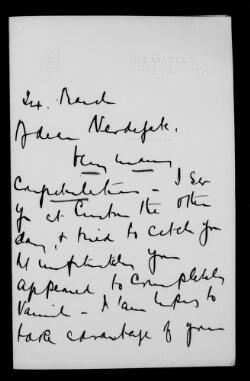 THE GABLES
My dear Verdejak.
Very many
Congratulations - I saw
you at Euston the other
day, & tried to catch you
but unfortunately you
appeared to completely
vanish - I am to
take advantage of your